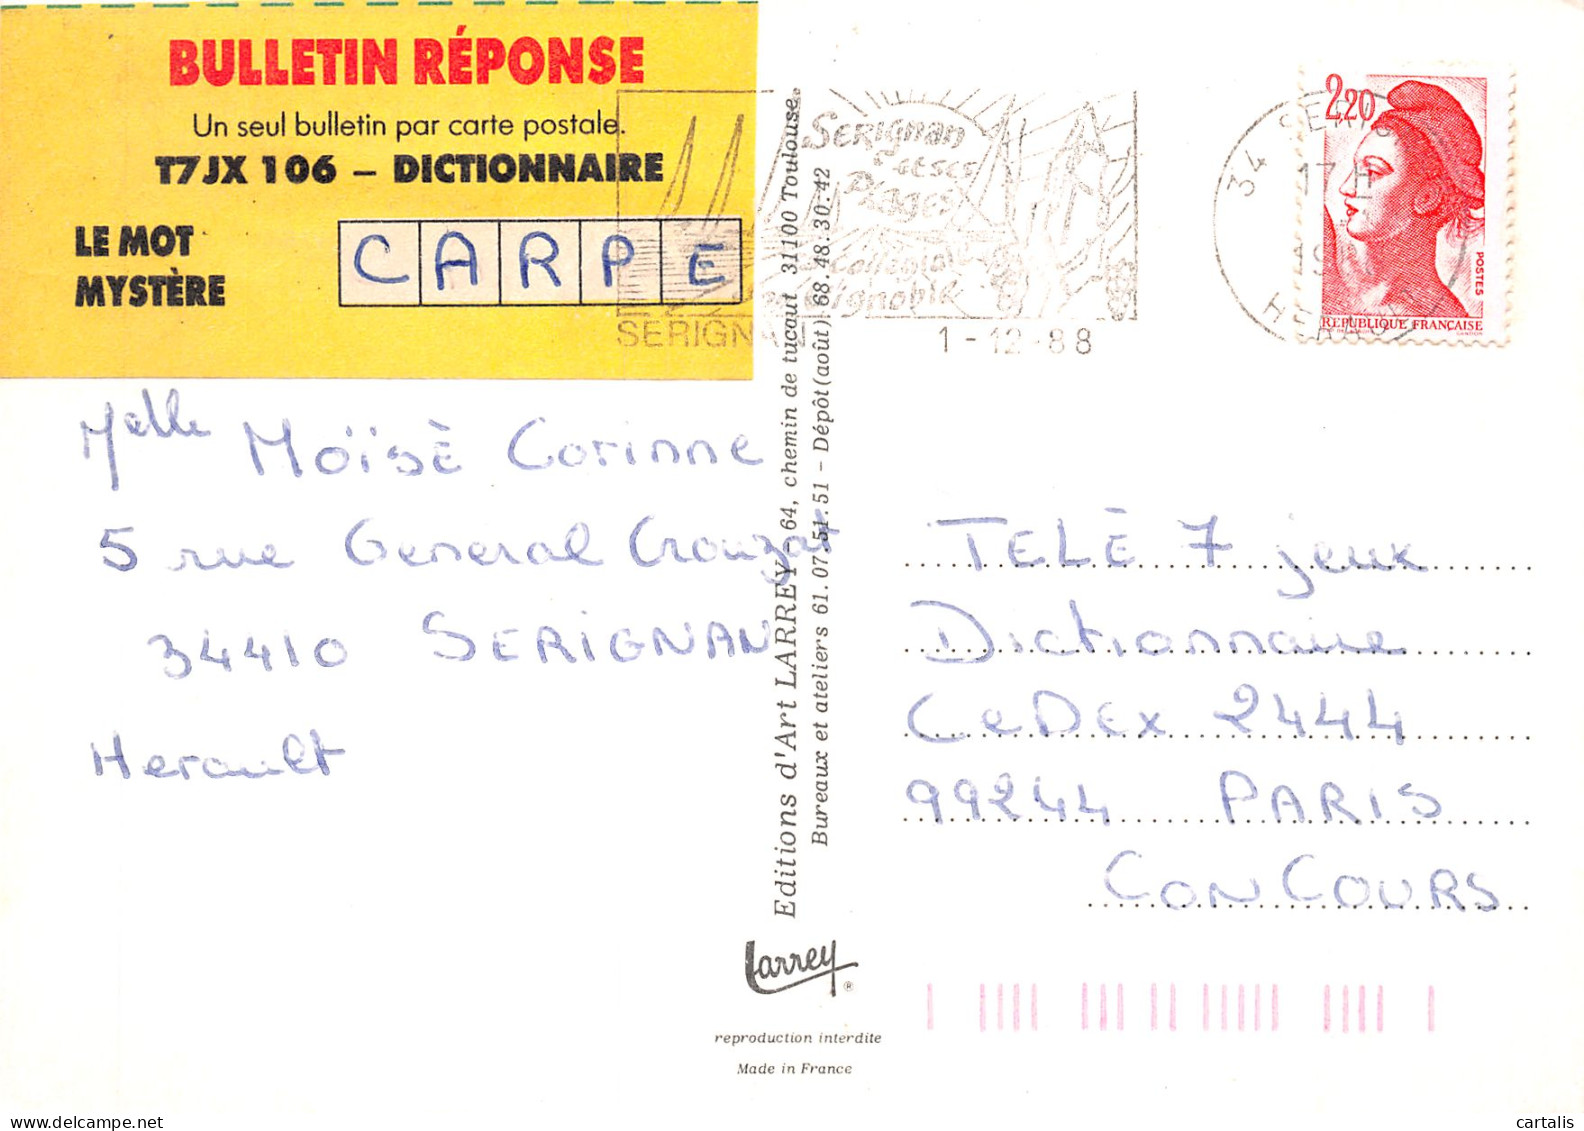 BULLETIN RÉPONSE
Un seul bulletin par carte postale.
T7JX 106 – DICTIONNAIRE
LE MOT
MYSTÈRE
CARPE
Serignan
et ses
Plages
SERIGNAN
1-12-88
34 SERIG
17 H
19
HERAULT
2,20
POSTES
REPUBLIQUE FRANÇAISE
Melle Moïsè Corinne
5 rue General Crouzat
34410 SERIGNAN
Herault
Editions d'Art LARREY - 64, chemin de tucaut 31100 Toulouse.
Bureaux et ateliers 61.07.51.51 - Dépôt (août) 68.48.30.42
TELÈ 7 jeux
Dictionnaire
CeDEx 2444
99244 PARIS
CONCOURS
Larrey
®
reproduction interdite
Made in France
cartalis
delcampe.net